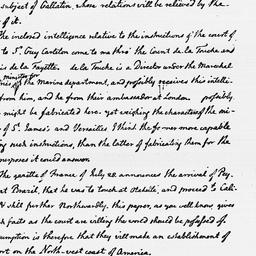 subject of Gallatin, whose relations will be relieved by the
of it.
The inclosed intelligence relative to the instructions of the court of
to Sr. Guy Carleton came to me thro' the Count de la Touche and
is de la Fayette. de la Touche is a Director under the Mareschal
minister for
of the Marine department, and possibly receives this intelli-
from him, and he from their ambassador at London. possibly
might be fabricated here. yet weighing the characters of the mi-
of St. James's and Versailles I think the former more capable
ing such instructions, than the latter of fabricating them for the
purposes it could answer.
The gazette of France of July 22 announces the arrival of Pey-
at Brazil, that he was to touch at Otaheité, and proceed to Cali-
& still further Northwardly. this paper, as you well know, gives
facts as the court are willing the world should be possessed of.
sumption is therefore that they will make an establishment of
ort on the North-west coast of America.